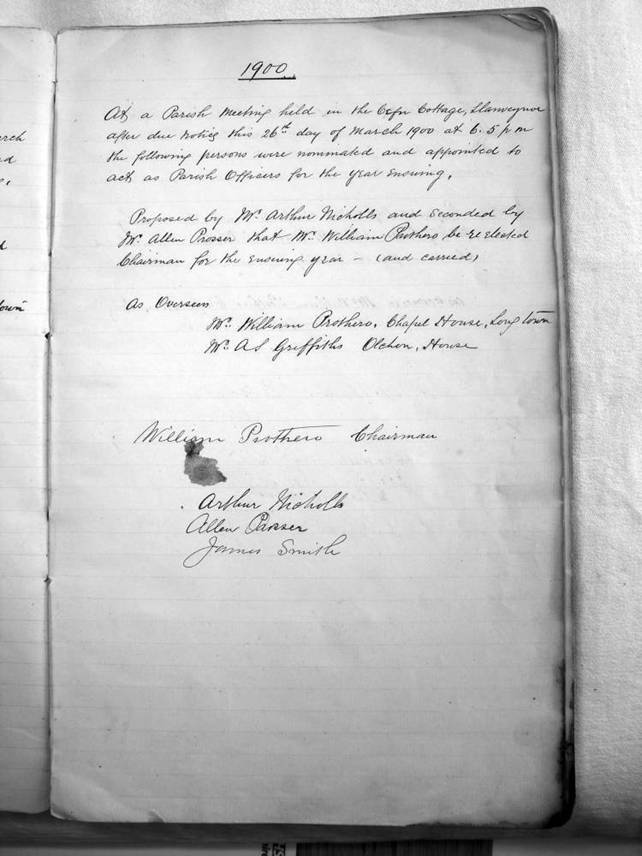 1900.
At a Parish Meeting held in the Cefn Cottage, Llanveynoe
after due notice this 26th day of March 1900 at 6.5 p m
the following persons were nominated and appointed to
act as Parish Officers for the year ensuing.
Proposed by Mr. Arthur Nicholls and seconded by
Mr. Allen Prosser that Mr. William Prothero be re elected
Chairman for the ensuing year – (and carried)
As Overseers
Mr. William Prothero, Chapel House, Longtown
Mr. A S Griffiths Olchon, House
William Prothero Chairman
Arthur Nicholls
Allen Prosser
James Smith